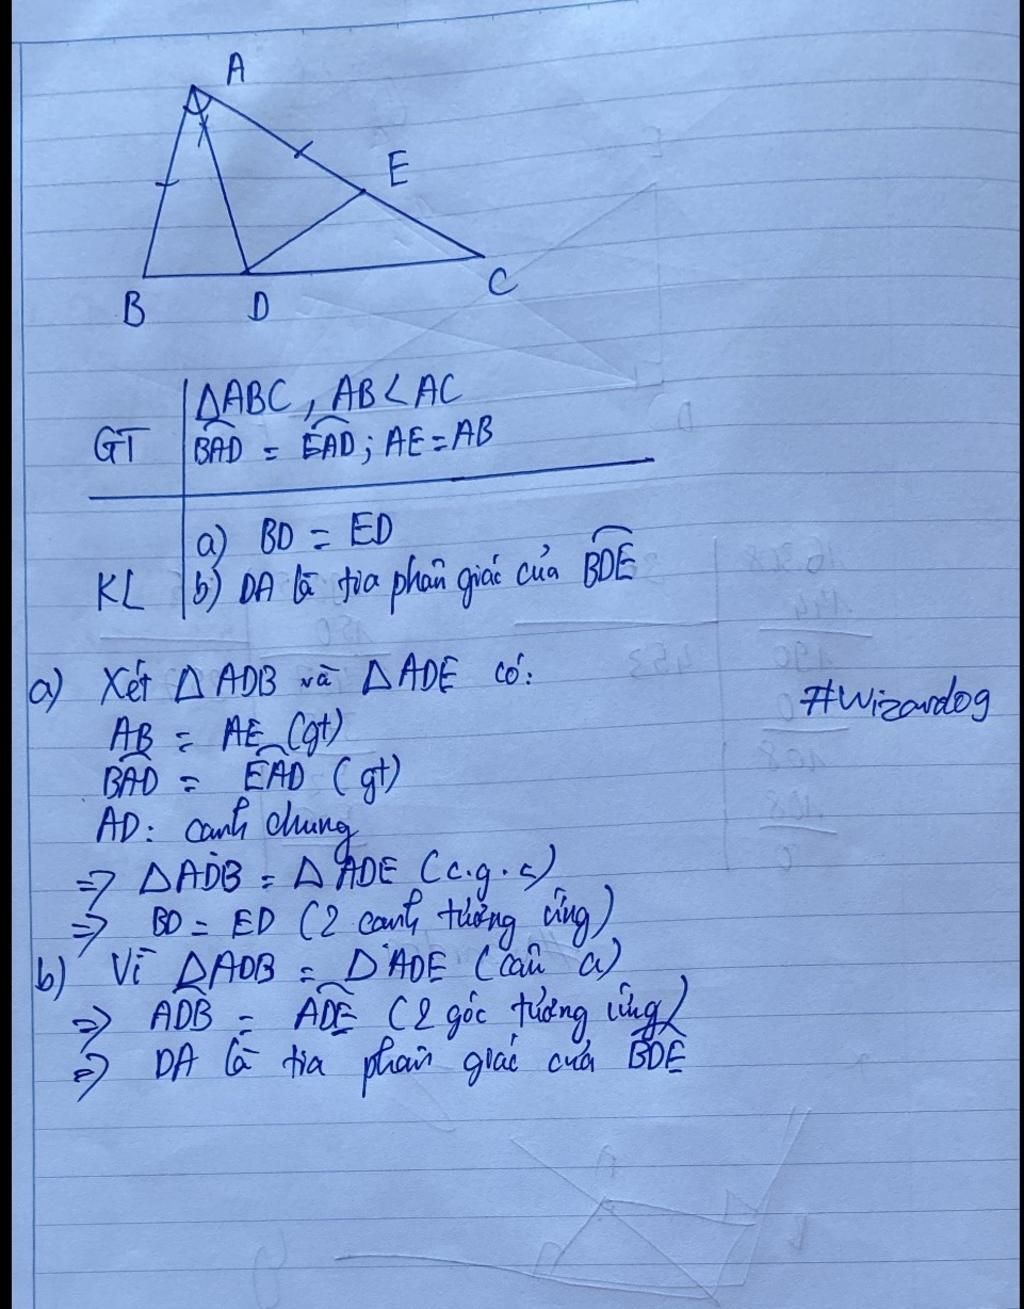 A
E
B D C
ΔABC, AB < AC
GT BAD = EAD; AE = AB
a) BD = ED
KL b) DA là tia phân giác của BDE
a) Xét Δ ADB và Δ ADE có:
#Wizardog
AB = AE (gt)
BAD = EAD (gt)
AD: cạnh chung
=> Δ ADB = Δ ADE (c.g.c)
=> BD = ED (2 cạnh tương ứng)
b) Vì ΔADB = ΔADE (câu a)
=> ADB = ADE (2 góc tương ứng)
=> DA là tia phân giác của BDE